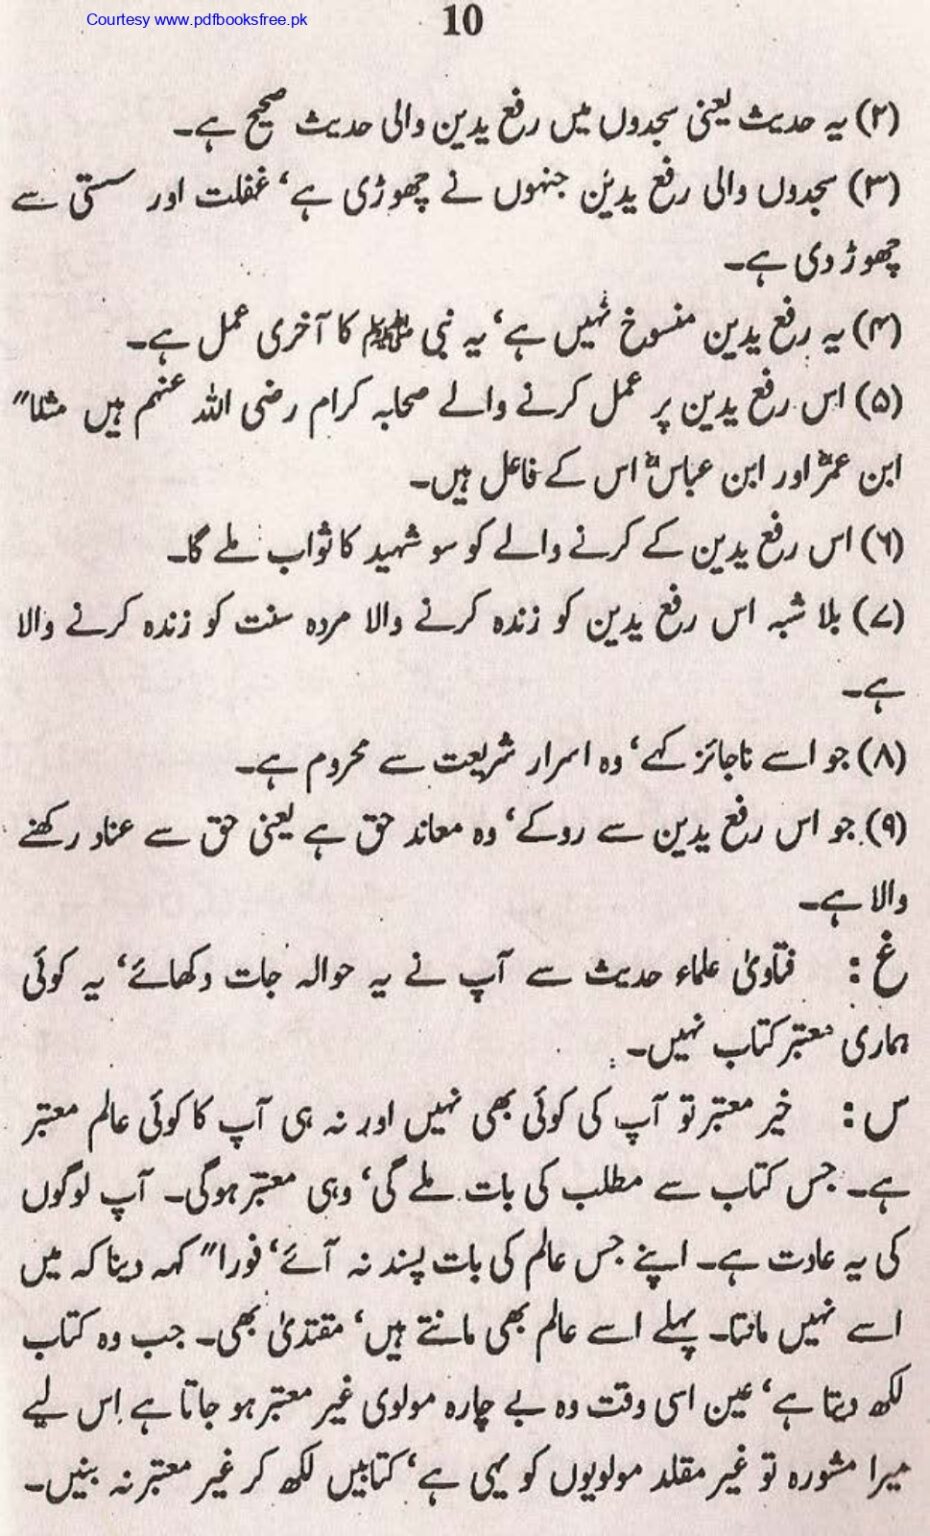 Courtesy www.pdfbooksfree.pk
10
(۲) یہ حدیث یعنی سجدوں میں رفع یدین والی حدیث صحیح ہے۔
(۳) سجدوں والی رفع یدین جنہوں نے چھوڑی ہے‘ غفلت اور سستی سے
چھوڑ دی ہے۔
(۴) یہ رفع یدین منسوخ نہیں ہے‘ یہ نبی ﷺ کا آخری عمل ہے۔
(۵) اس رفع یدین پر عمل کرنے والے صحابہ کرام رضی اللہ عنہم ہیں مثلا"
ابن عمرؓ اور ابن عباسؓ اس کے فاعل ہیں۔
(۶) اس رفع یدین کے کرنے والے کو سو شہید کا ثواب ملے گا۔
(۷) بلا شبہ اس رفع یدین کو زندہ کرنے والا مردہ سنت کو زندہ کرنے والا
ہے۔
(۸) جو اسے ناجائز کہے‘ وہ اسرار شریعت سے محروم ہے۔
(۹) جو اس رفع یدین سے روکے‘ وہ معاند حق ہے یعنی حق سے عناد رکھنے
والا ہے۔
غ : فتاویٰ علماء حدیث سے آپ نے یہ حوالہ جات دکھائے‘ یہ کوئی
ہماری معتبر کتاب نہیں۔
س : خیر معتبر تو آپ کی کوئی بھی نہیں اور نہ ہی آپ کا کوئی عالم معتبر
ہے۔ جس کتاب سے مطلب کی بات ملے گی‘ وہی معتبر ہوگی۔ آپ لوگوں
کی یہ عادت ہے۔ اپنے جس عالم کی بات پسند نہ آئے‘ فورا" کہہ دینا کہ میں
اسے نہیں مانتا۔ پہلے اسے عالم بھی مانتے ہیں‘ مقتدیٰ بھی۔ جب وہ کتاب
لکھ دیتا ہے‘ عین اسی وقت وہ بے چارہ مولوی غیر معتبر ہو جاتا ہے اس لیے
میرا مشورہ تو غیر مقلد مولویوں کو یہی ہے‘ کتابیں لکھ کر غیر معتبر نہ بنیں۔